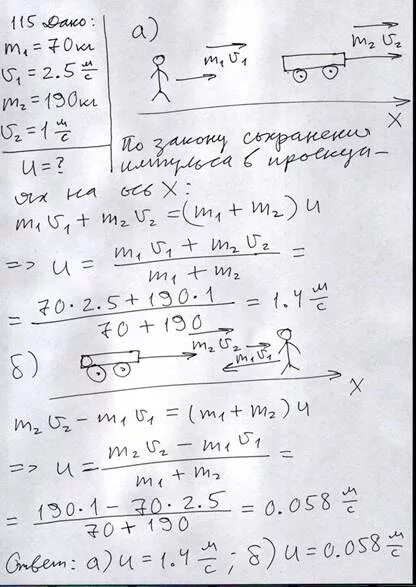 115 Дано:
m₁ = 70 кг
v₁ = 2.5 м/с
m₂ = 190 кг
v₂ = 1 м/с
u = ?
а)
m₁v₁
m₂v₂
X
По закону сохранения
импульса в проекци-
ях на ось X:
m₁v₁ + m₂v₂ = (m₁ + m₂) u
=> u = (m₁v₁ + m₂v₂) / (m₁ + m₂) =
= (70 · 2.5 + 190 · 1) / (70 + 190) = 1.4 м/с
б)
m₂v₂
m₁v₁
X
m₂v₂ - m₁v₁ = (m₁ + m₂) u
=> u = (m₂v₂ - m₁v₁) / (m₁ + m₂) =
= (190 · 1 - 70 · 2.5) / (70 + 190) = 0.058 м/с
Ответ: а) u = 1.4 м/с; б) u = 0.058 м/с